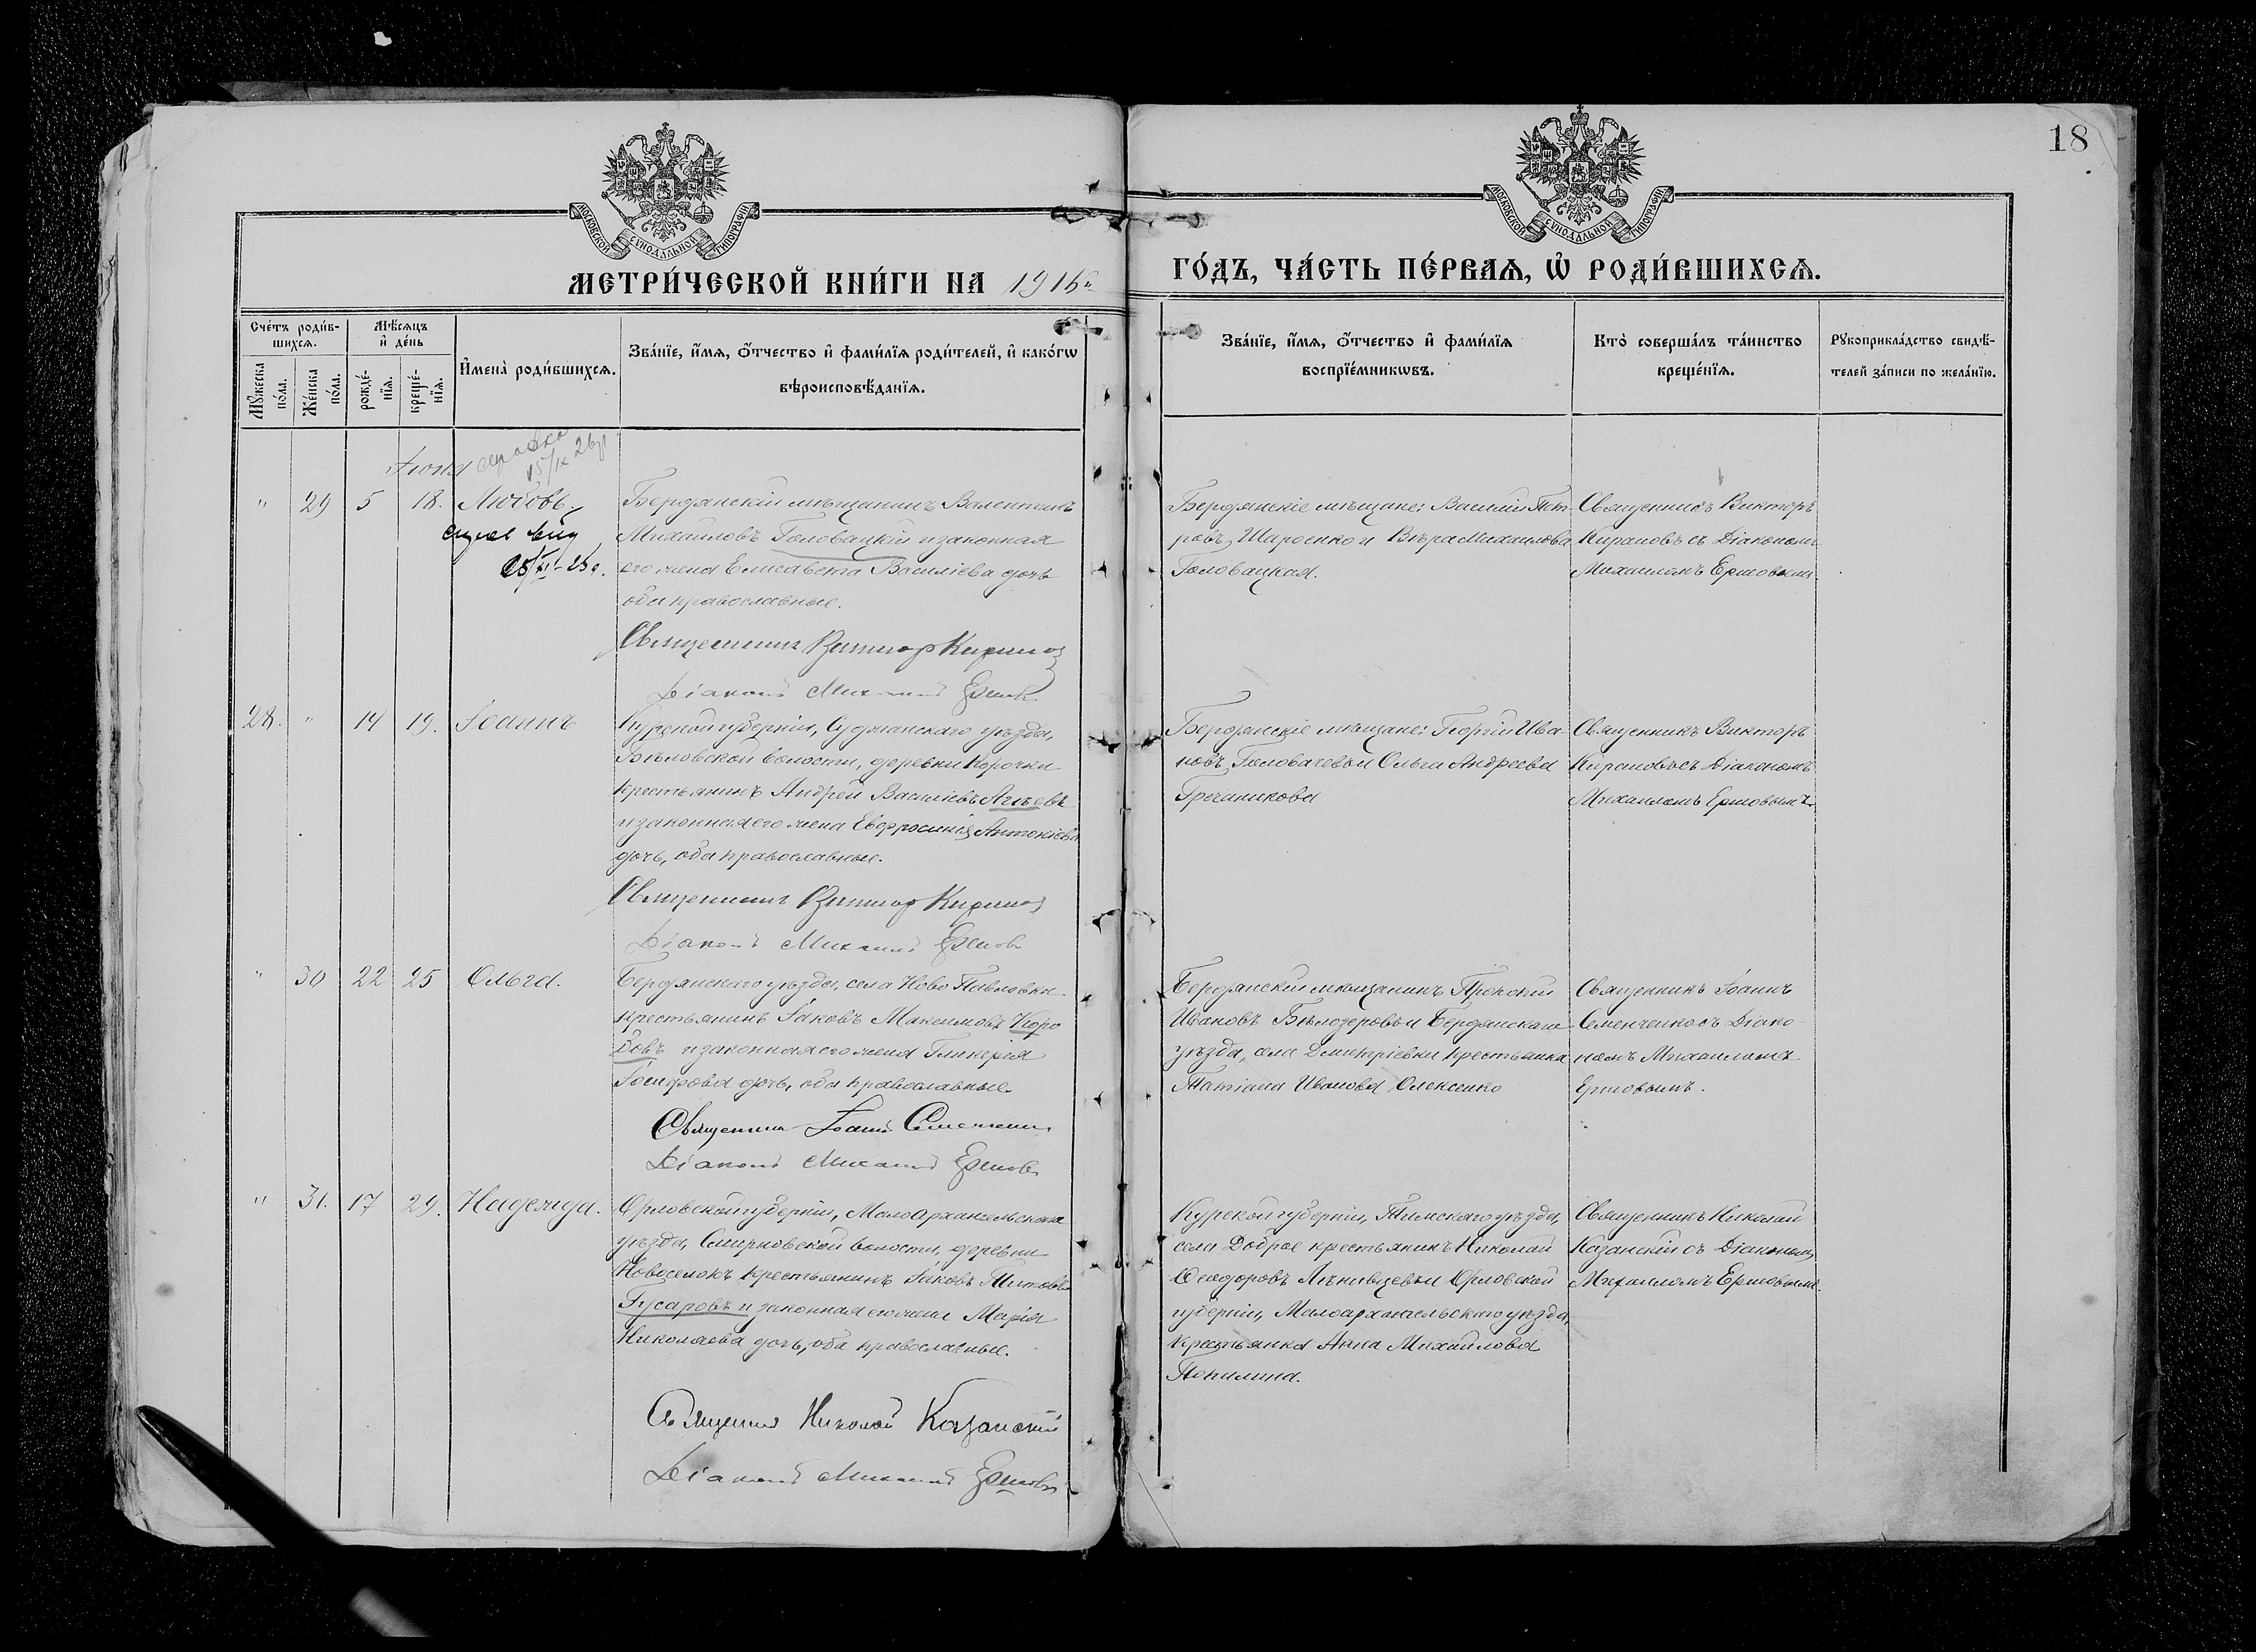 18
МОСКОВСКОЙ СУНОДАЛЬНОЙ ТИПОГРАФІИ
МОСКОВСКОЙ СУНОДАЛЬНОЙ ТИПОГРАФІИ
МЕТРИ́ЧЕСКОЙ КНИ́ГИ НА 1916
ГО́ДЪ, ЧА́СТЬ ПЕ́РВАѦ, Ѡ҆ РОДИ́ВШИХСѦ.
Сче́тъ роди́в-
шихсѧ.
Мꙋ́жеска
по́ла.
Же́нска
по́ла.
Мѣ́сѧцъ
и҆ де́нь
рожде́-
нїѧ.
креще́-
нїѧ.
И҆мена̀ роди́вшихсѧ.
Зва́нїе, и҆́мѧ, ѻ҆́тчество и҆ фами́лїѧ роди́телей, и҆ како́гѡ
вѣроисповѣ́данїѧ.
Зва́нїе, и҆́мѧ, ѻ҆́тчество и҆ фами́лїѧ
воспрїе́мникѡвъ.
Кто̀ соверша́лъ та́инство
креще́нїѧ.
Рꙋкоприкла́дство свидѣ́-
телей за́писи по жела́нїю.
Іюня
справка
15/IX 26г
" 29 5 18. Любовь.
Бердянскій мѣщанинъ Валентинъ
Михаиловъ Головацкій и законная
его жена Елисавета Василіева дочь
оба православные.
Священникъ Викторъ Кирановъ
Діаконъ Михаилъ Ершовъ
Бердянскіе мѣщане: Василій Пет-
ровъ Шароенко и Вѣра Михаилова
Головацкая.
Священникъ Викторъ
Кирановъ съ Діакономъ
Михаиломъ Ершовымъ.
28. " 14 19. Іоаннъ
Курской губерніи, Суджанскаго уѣзда,
Бѣловской волости, деревни Корочки
крестьянинъ Андрей Василіевъ Агѣевъ
и законная его жена Евфросинія Антоніева
дочь, оба православные.
Священникъ Викторъ Кирановъ
Діаконъ Михаилъ Ершовъ
Бердянскіе мѣщане: Георгій Ива-
новъ Головачевъ и Ольга Андреева
Гречаникова
Священникъ Викторъ
Кирановъ съ Діакономъ
Михаиломъ Ершовымъ.
" 30 22 25 Ольга.
Бердянскаго уѣзда, села Ново Павловки
крестьянинъ Іаковъ Максимовъ Коро
бовъ и законная его жена Гликерія
Іосифова дочь, оба православные.
Священникъ Іоаннъ Семенченко
Діаконъ Михаилъ Ершовъ
Бердянскій мѣщанинъ Прокопій
Ивановъ Бѣлозеровъ и Бердянскаго
уѣзда, села Дмитріевки крестьянка
Татіана Иванова Олексенко
Священникъ Іоаннъ
Семенченко съ Діако-
номъ Михаиломъ
Ершовымъ.
" 31. 17 29. Надежда.
Орловской губерніи, Малоархангельскаго
уѣзда, Смирновской волости, деревни
Новоселокъ крестьянинъ Іаковъ Титовъ
Гусаровъ и законная его жена Марія
Николаева дочь, оба православные.
Священникъ Николай Казанскій
Діаконъ Михаилъ Ершовъ
Курской губерніи, Тимскаго уѣзда,
села Доброе крестьянинъ Николай
Ѳеодоровъ Лѣнивцевъ и Орловской
губерніи, Малоархангельскаго уѣзда,
крестьянка Анна Михайлова
Священникъ Николай
Казанскій съ Діакономъ
Михаиломъ Ершовымъ.